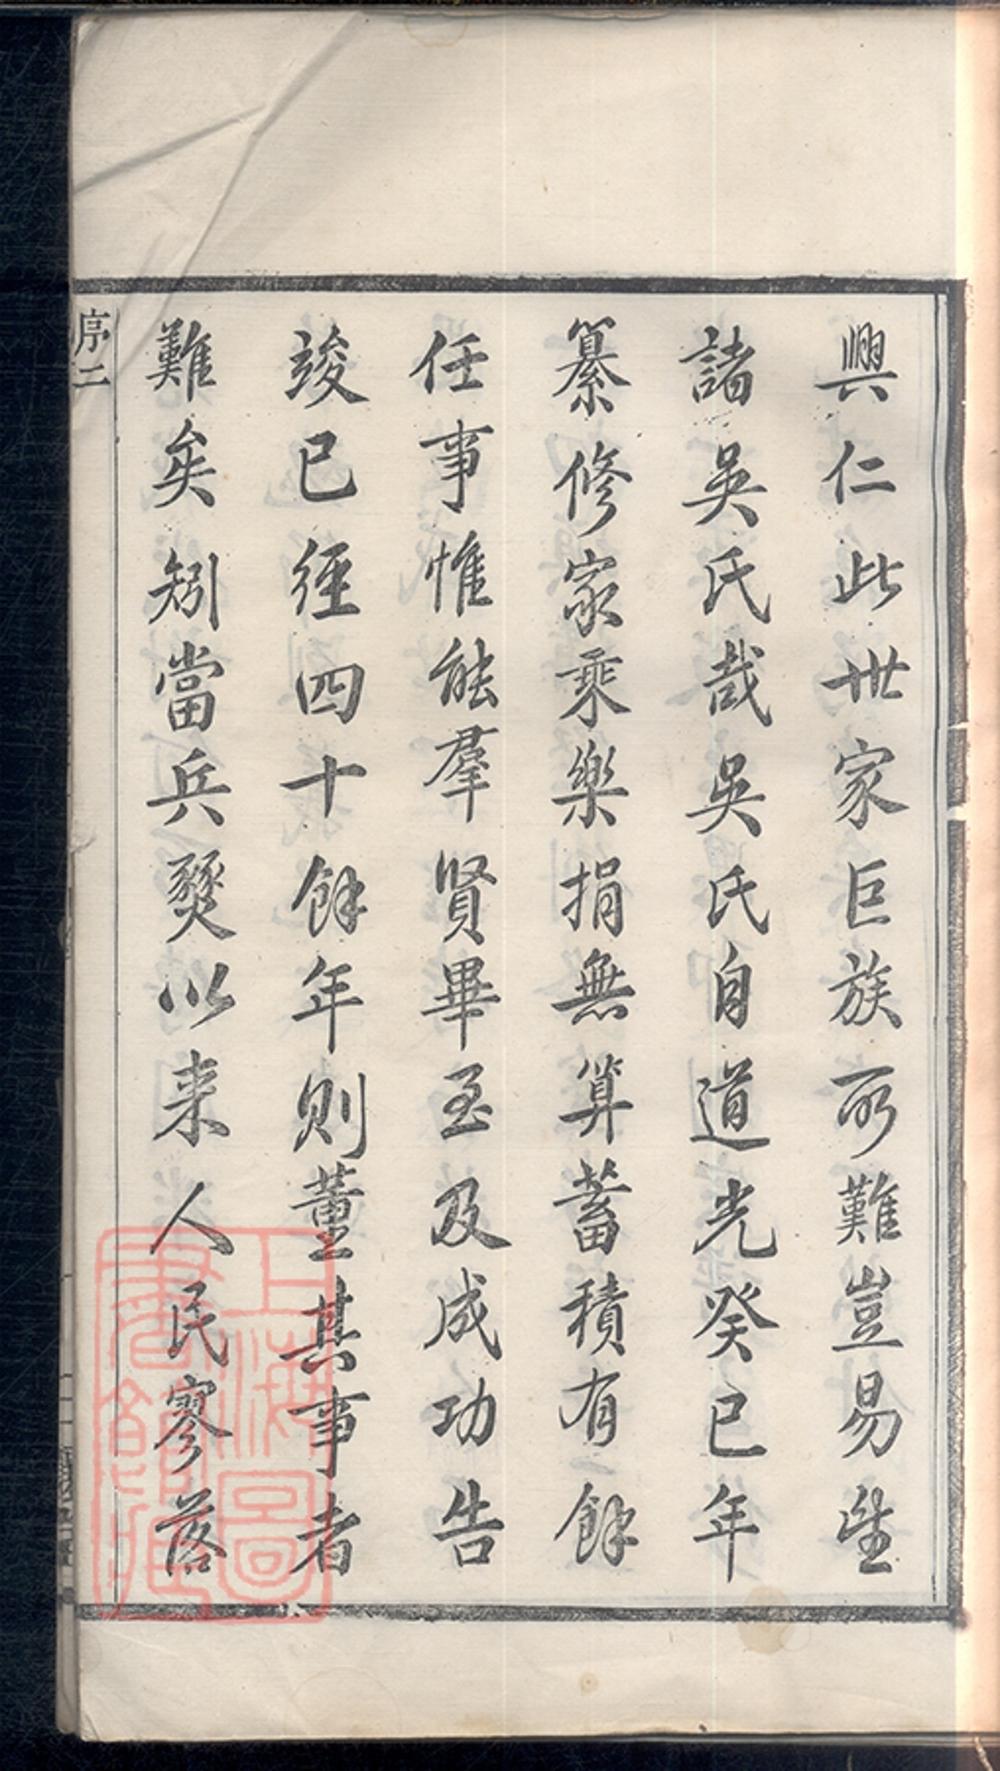 興仁此世家巨族所難豈易生
諸吳氏哉吳氏自道光癸巳年
纂修家乘樂捐無算蓄積有餘
任事惟能羣賢畢至及成功告
竣已經四十餘年則董其事者
難矣矧當兵燹以来人民寥落
序二
上海圖書館藏